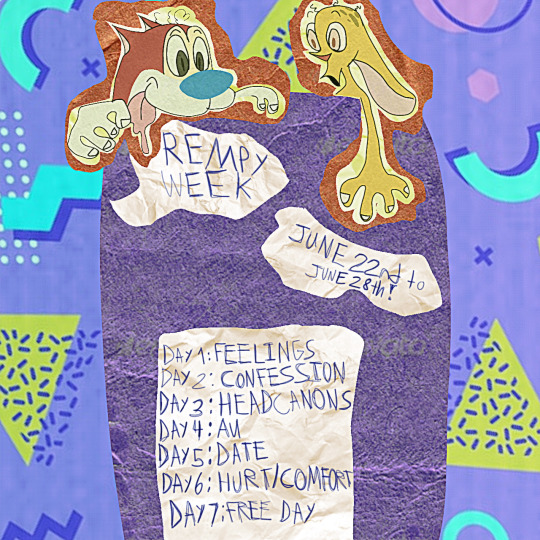 REMPY
WEEK
JUNE 22nd to
JUNE 28th!
DAY 1: FEELINGS
DAY 2: CONFESSION
DAY 3: HEADCANONS
DAY 4: AU
DAY 5: DATE
DAY 6: HURT/COMFORT
DAY 7: FREE DAY